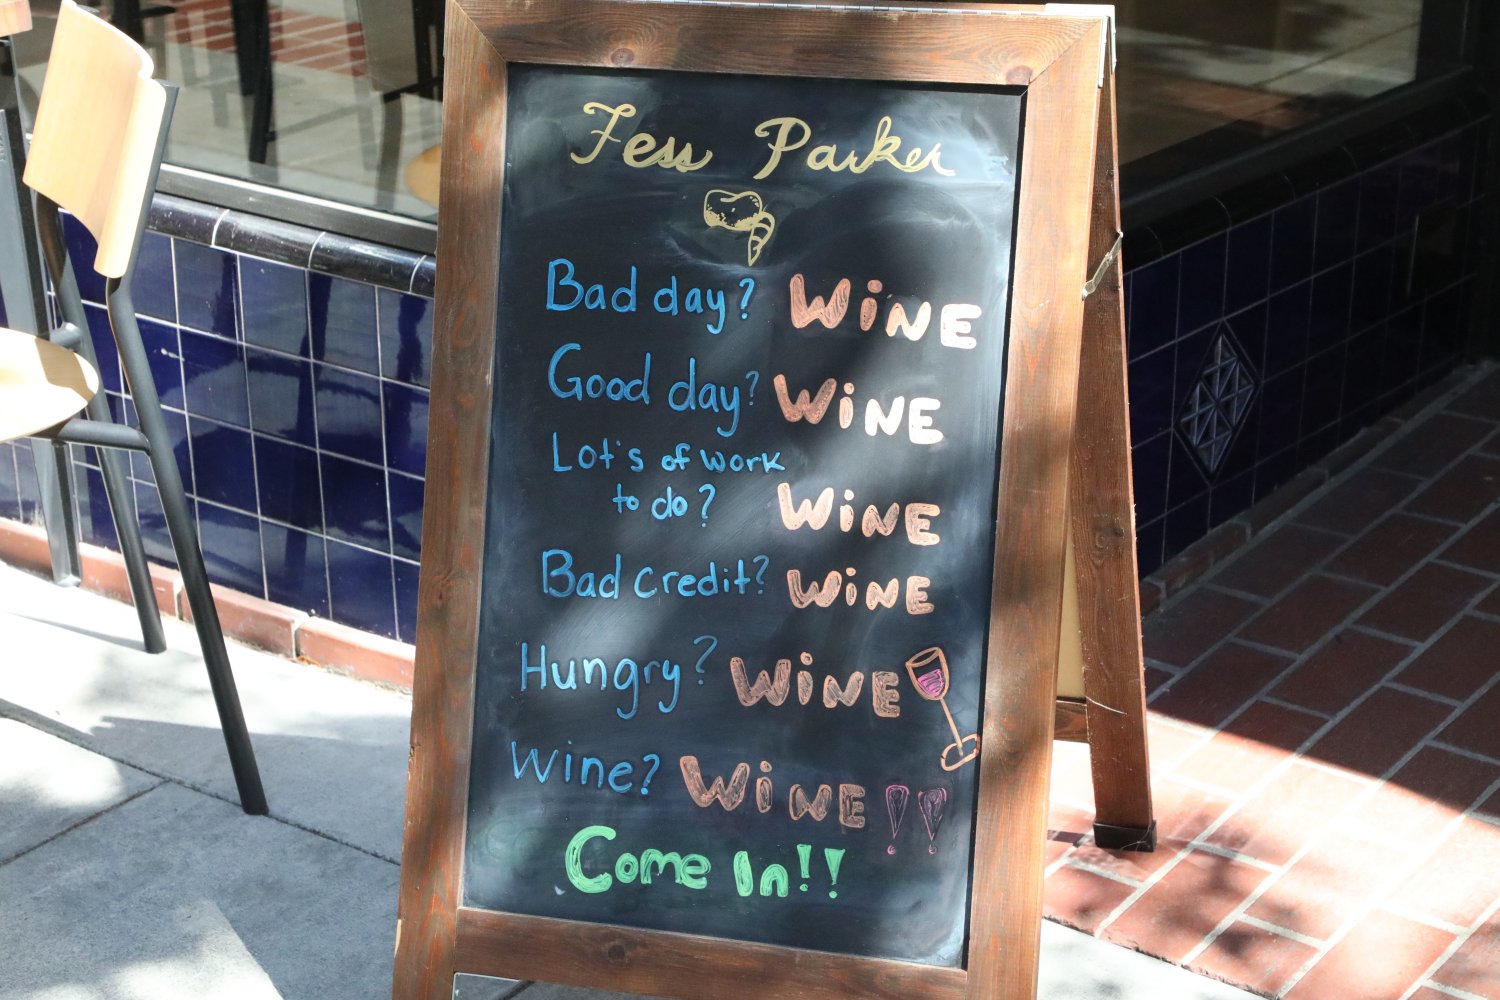 Fess Parker
Bad day? WiNE
Good day? WiNE
Lot's of work
to do? WiNE
Bad credit? WiNE
Hungry? WiNE
Wine? WiNE!!
Come In!!